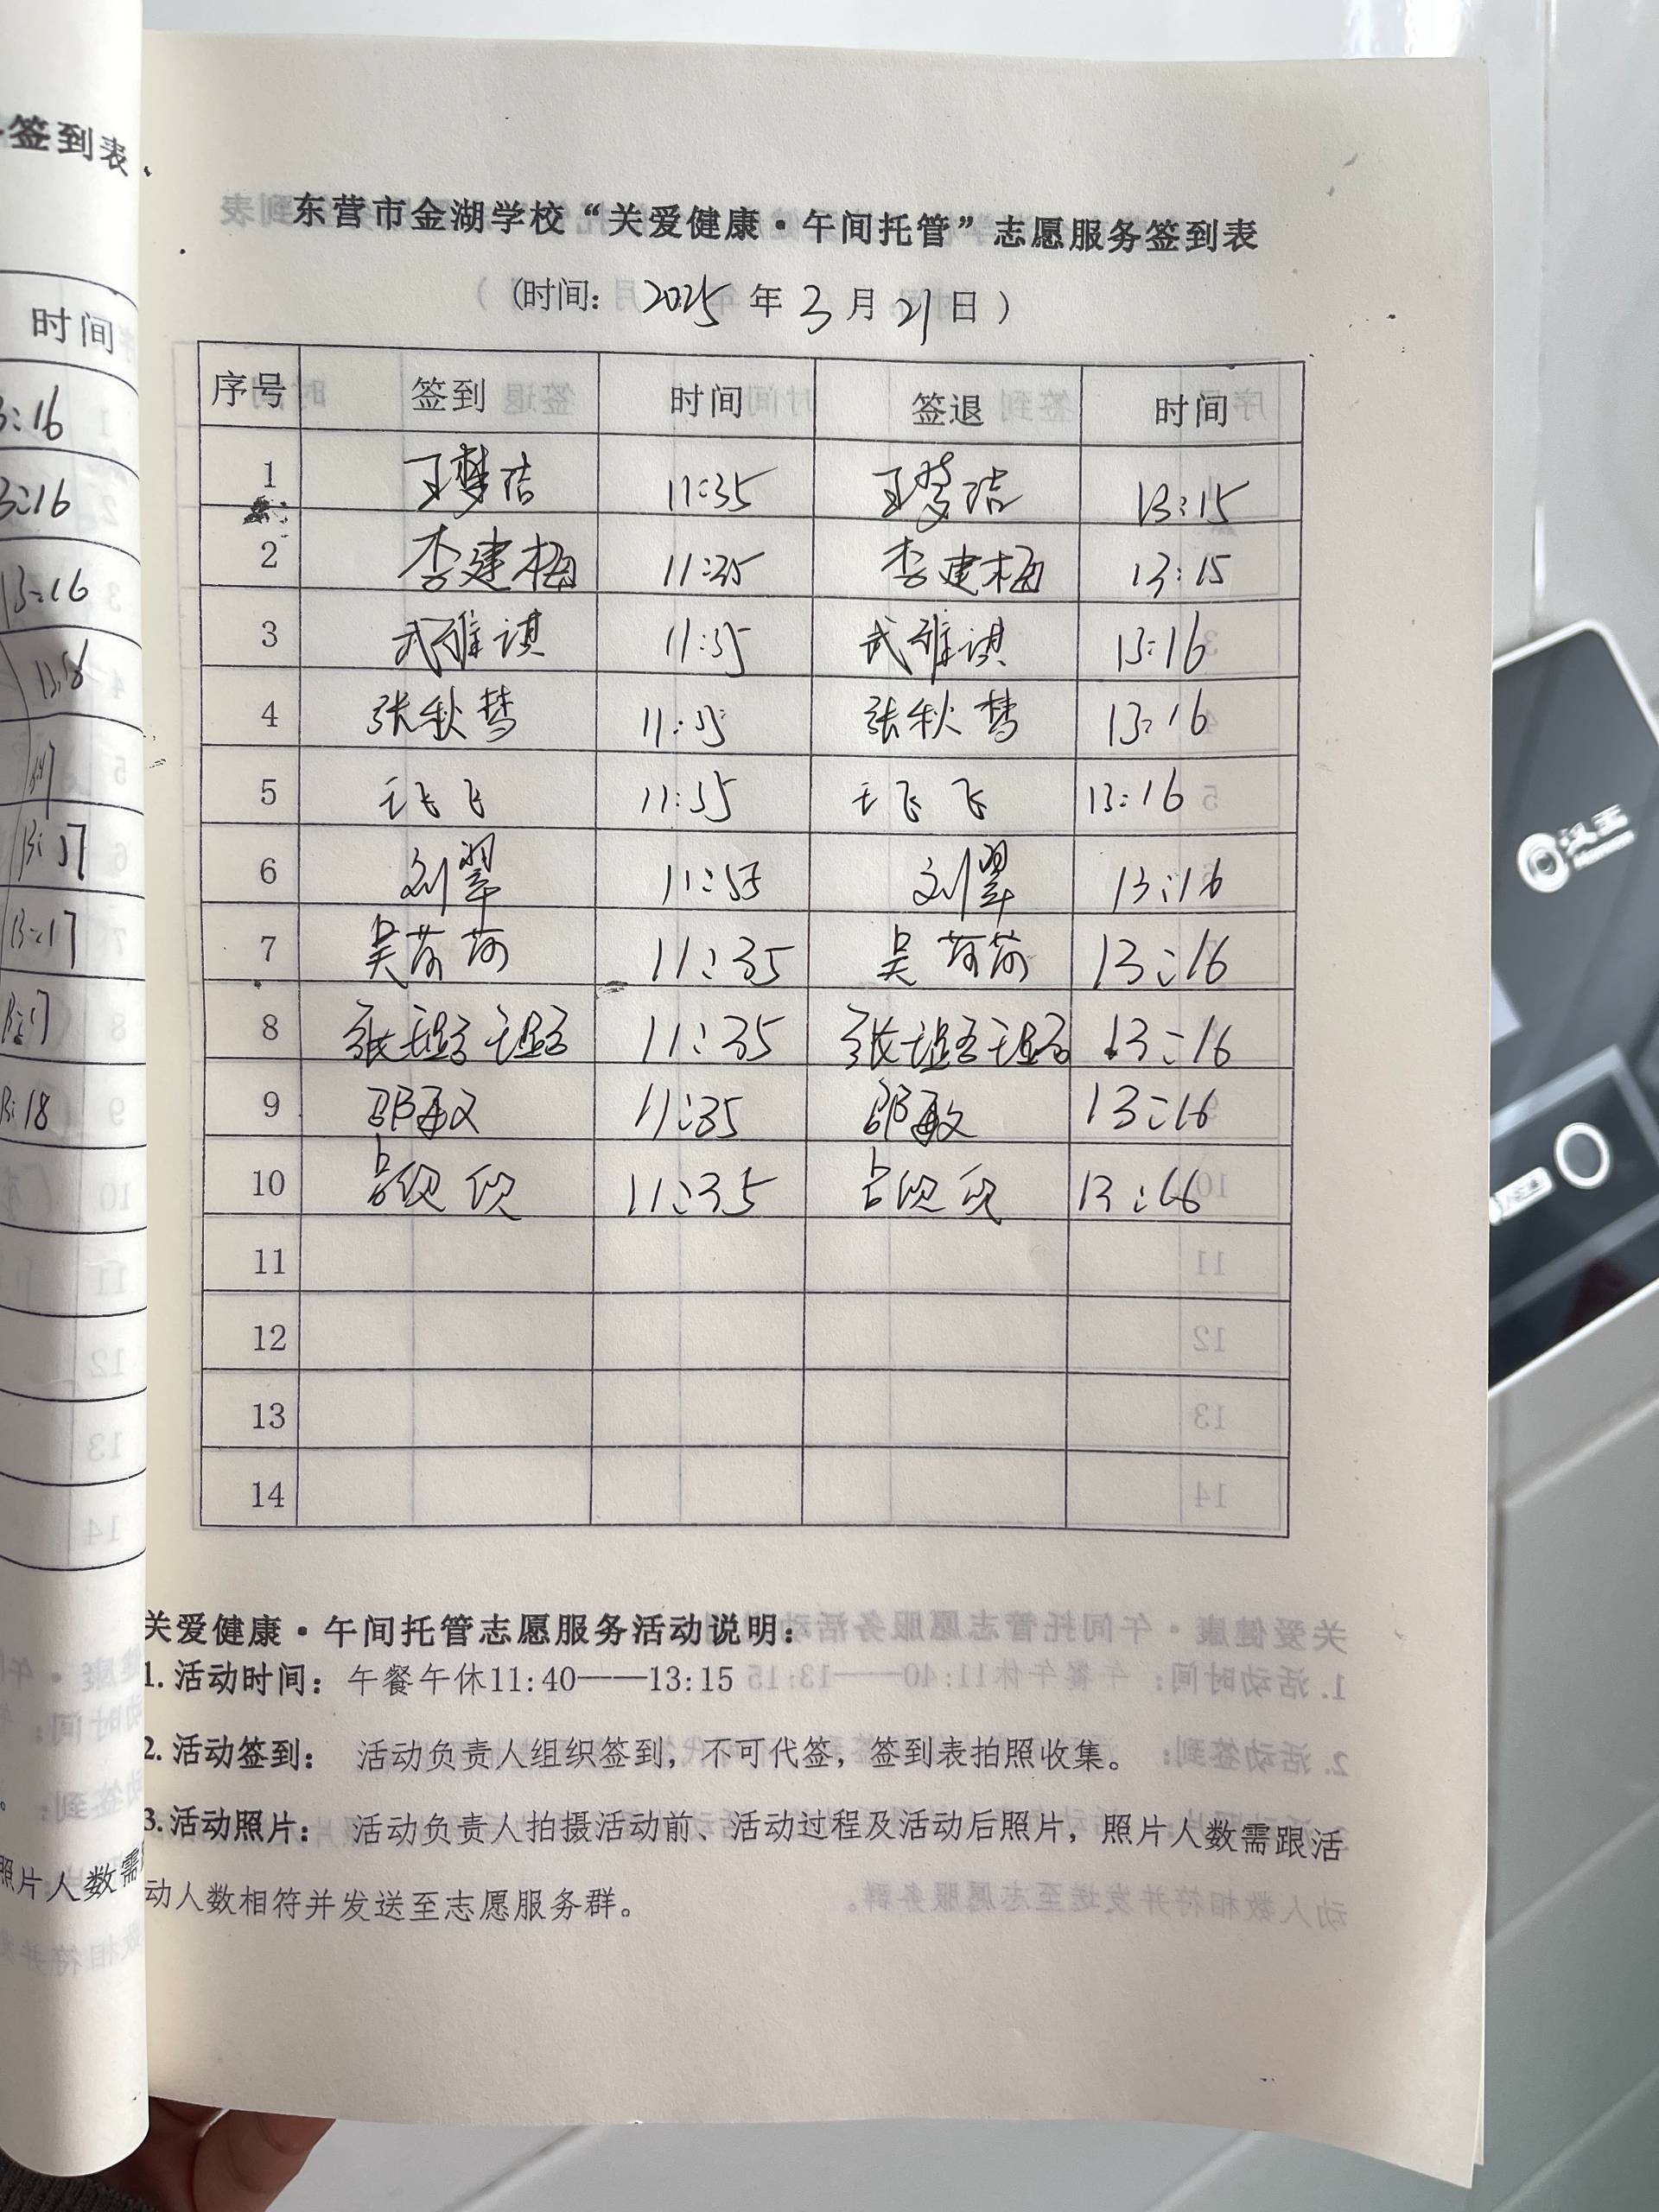 签到表
时间
3:16
3:16
13:16
13:17
13:17
13:18
照片人数需
东营市金湖学校“关爱健康·午间托管”志愿服务签到表
(时间: 2025 年 3 月 21 日 )
序号 签到 时间 签退 时间
1 王梦洁 11:35 王梦洁 13:15
2 李建梅 11:35 李建梅 13:15
3 武雅琪 11:35 武雅琪 13:16
4 张秋梦 11:35 张秋梦 13:16
5 王飞飞 11:35 王飞飞 13:16
6 刘翠 11:35 刘翠 13:16
7 吴荷荷 11:35 吴荷荷 13:16
8 张 11:35 张 13:16
9 邵敏 11:35 邵敏 13:16
10 11:35 13:16
11
12
13
14
关爱健康·午间托管志愿服务活动说明:
1. 活动时间: 午餐午休11:40——13:15
2. 活动签到: 活动负责人组织签到, 不可代签, 签到表拍照收集。
3. 活动照片: 活动负责人拍摄活动前、活动过程及活动后照片, 照片人数需跟活
动人数相符并发送至志愿服务群。